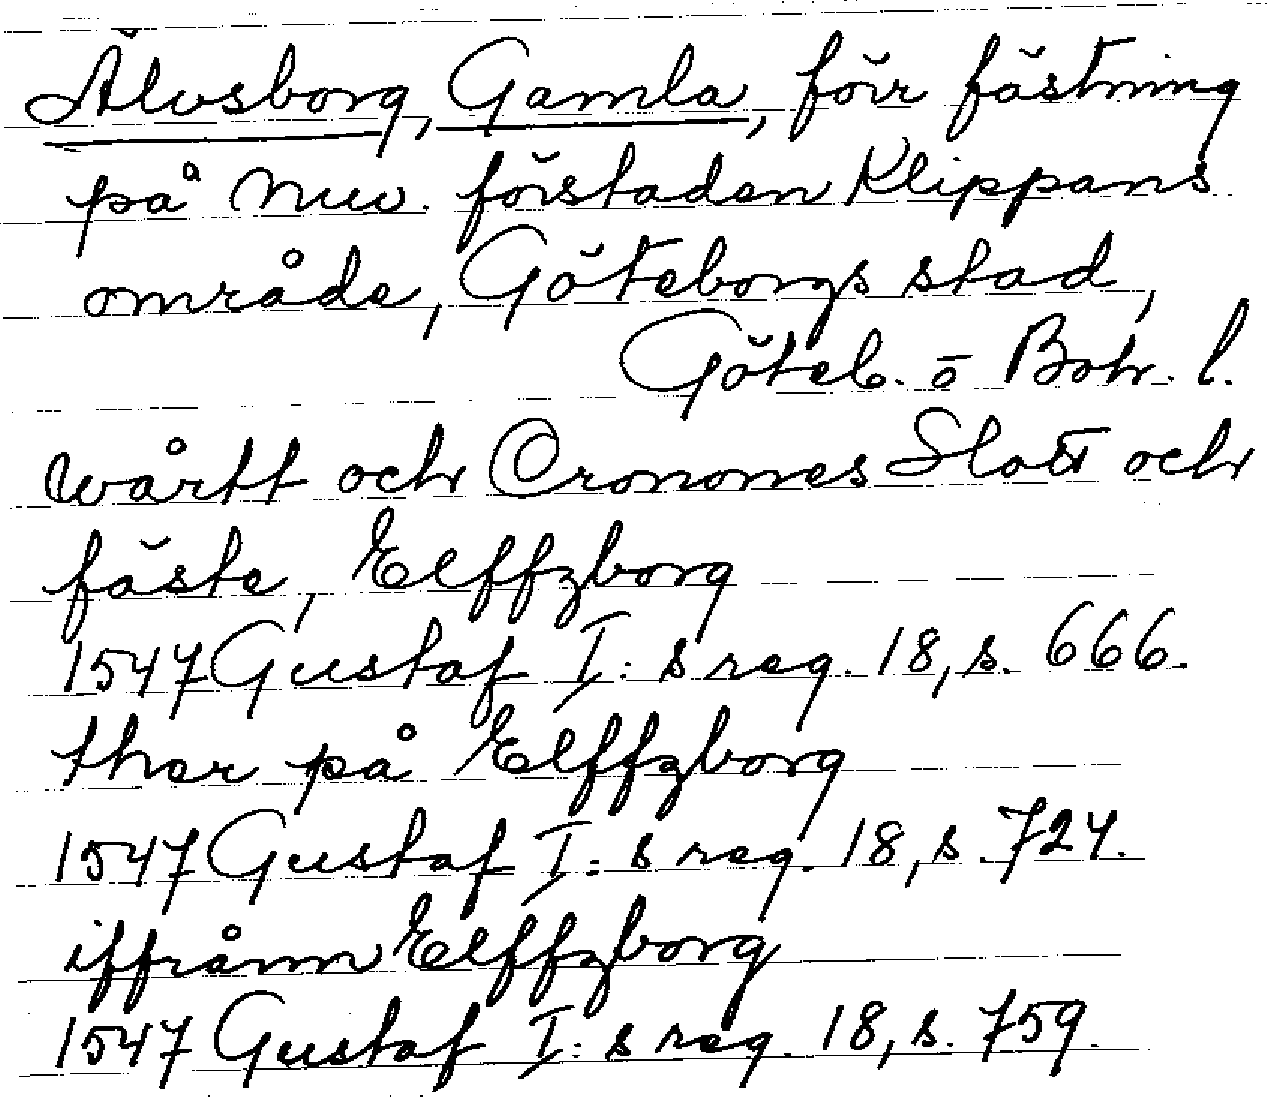 Älvsborg, Gamla, förr fästning
på nuv. förstaden Klippans
område, Göteborgs stad,
Göteb. o Boh. l.
wårtt och Cronones Slott och
fäste, Elffzborg
1547 Gustaf I: s reg. 18, s. 666.
ther på Elffzborg
1547 Gustaf I: s reg. 18, s. 724.
iffrånn Elffzborg
1547 Gustaf I: s reg. 18, s. 759.